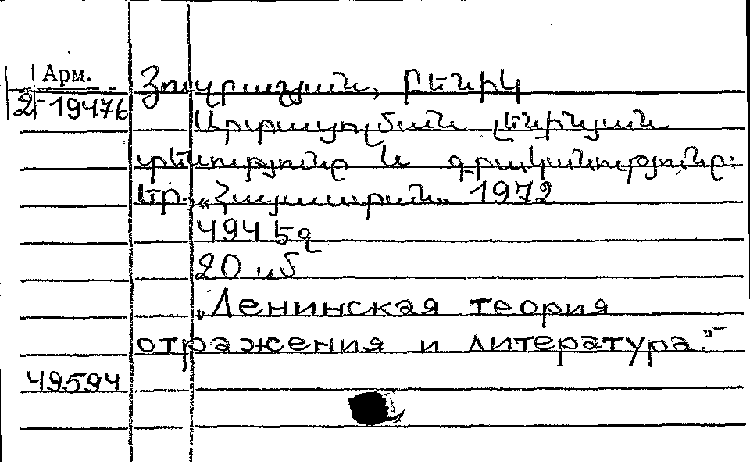 Арм.
2-19476
Զուլրադյան, Բենիկ
Արտացոլման լենինյան
տեսությունը և գրականությունը։
Եր. «Հայաստան» 1972
494 էջ
20 սմ
„Ленинская теория
отражения и литература."
49594